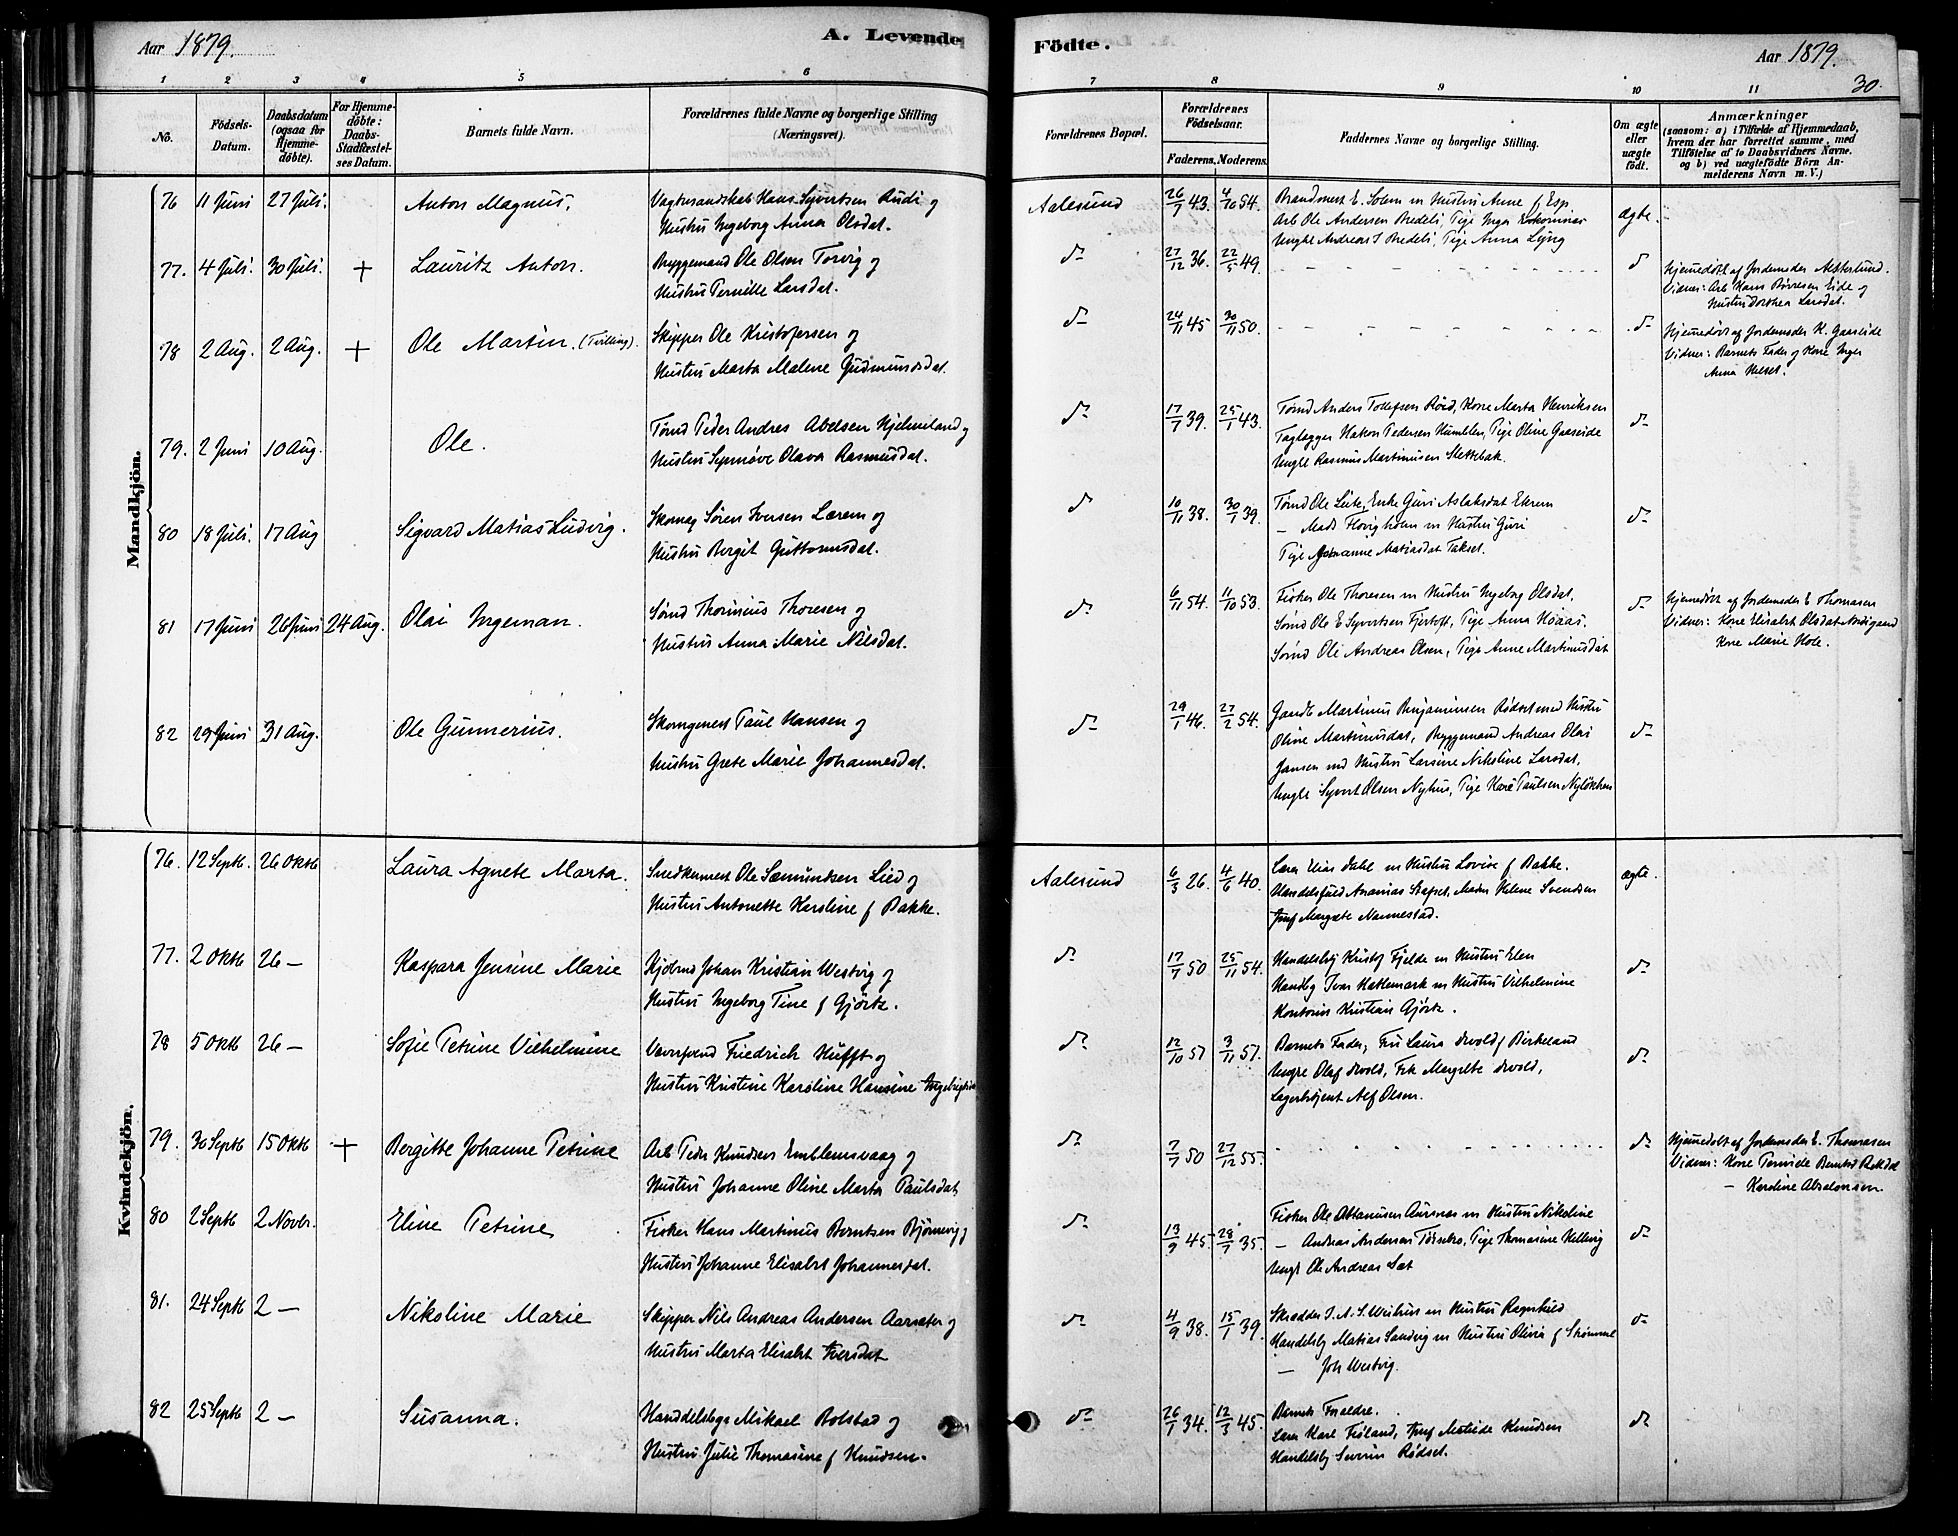 Aar 1879.
A. Levende
1 2 3 4 5 6
No.
Födsels-Datum.
Daabsdatum (ogsaa for Hjemmedöbte).
For Hjemmedöbte: Daabs-Stadfæstelses Datum.
Barnets fulde Navn.
Forældrenes fulde Navne og borgerlige Stilling (Næringsvei).
Mandkjön.
76 11 Juni 27 Juli. Anton Magnus. Hans Syvertsen Rudi og
Hustru Ingeborg Anna Olsdat.
77. 4 Juli. 30 Juli. + Lauritz Anton. Byggemand Ole Olsen Torvig og
Hustru Pernille Larsdat.
78 2 Aug. 2 Aug. + Ole Martin. (Tvilling). Skipper Ole Kristofersen og
Hustru Marta Malene Gudmundsdat.
79. 2 Juni 10 Aug. Ole. Tømd Peder Andreas Abelsen Hjelmeland og
Hustru Synnøve Olava Rasmusdat.
80 18 Juli. 17 Aug Sigvard Matias Ludvig. Skomag Søren Iversen Lærem og
Hustru Bergit Guttormsdat.
81 17 Juni 26 Juni 24 Aug. Olai Ingeman. Sømd Thorinius Thoresen og
Hustru Anna Marie Nilsdat.
82 29 Juni 31 Aug. Ole Gunnerius. Skomgmest Paul Hansen og
Hustru Grete Marie Johannesdat.
Kvindekjön.
76. 12 Septb. 26 Oktb Laura Agnete Marta. Snedkermest Ole Sæmundsen Lied og
Hustru Antonette Karoline f Bakke.
77. 2 Oktb 26 — Kaspara Jensine Marie Kjøbmd Johan Kristian Westvig og
Hustru Ingeborg Tine f Gjörtz.
78 5 Oktb 26 — Sofie Petrine Vilhelmine Friedrich Hufft og
Hustru Kristine Karoline Hansine
79. 30 Septb 15 Oktb + Bergitte Johanne Petrine Arb Peder Knudsen Emblemsvaag og
Hustru Johanne Oline Marta Paulsdat
80 2 Septb 2 Novbr. Eline Petrine Fisker Hans Martinus Berntsen Bjørnevig og
Hustru Johanne Elisabet Johannesdat.
81. 24 Septb 2 — Nikoline Marie Skipper Nils Andreas Andersen Aarsæter og
Hustru Marta Elisabet Iversdat
82 25 Septb 2 — Susanna. Handdelsbgs Mikael Bolstad og
Hustru Julie Thomasine f Knudsen.
Födte.
Aar 1879.
30.
7 8 9 10 11
Forældrenes Bopæl.
Forældrenes Födselsaar.
Faderens. Moderens.
Faddernes Navne og borgerlige Stilling.
Om ægte eller uægte födt.
Anmærkninger
(saasom: a) i Tilfælde af Hjemmedaab, hvem der har forrettet samme, med Tilföielse af to Daabsvidners Navne. og b) ved uægtefödte Börn Anmelderens Navn m. V.)
Aalesund 26/7 43. 4/10 54. Brandmest E. Solem m Hustru Anne f Esp.
Arb Ole Andersen Bredeli, Pige Inger
Ungkl Andreas I Bredeli, Pige Anna Lyng
ægte.
do 27/12 36. 22/5 49. do Hjemmedøbt af Jordemoder
Vidner: Arb Hans Eide og
Hustru Dorthea Larsdat.
do 24/11 45 30/11 50. do Hjemmedøbt af Jordemoder K. Gaaseide
Vidner: Barnets Fader og Kone Inger
Anna Helset.
do 17/7 39. 25/1 43. Tømd Anders Tollefsen Röed, Kone Marta Henriksen
Taglægger Hakon Pedersen Humblen, Pige Oline Gaaseide
Ungkl Rasmus Martinusen Slettebak.
do
do 10/11 38. 30/1 39. Tømd Ole Leite, Enke Guri Aslaksdat Ekrem
— Mads Flovigholm m Hustru Guri
Pige Johanne Matiasdat Takset.
do
do 6/11 54. 11/10 53. Fisker Ole Thoresen m Hustru Ingeborg Olsdat.
Sømd Ole E Syvertsen Fjørtoft, Pige Anna Höaas.
Sømd Ole Andreas Olsen, Pige Anne Martinusdat
do Hjemmedøbt af Jordemoder E Thomasen
Vidner: Kone Elisabet Olsdat
Kone Marie Hole.
do 29/1 46. 27/2 54. Gaardb Martinus Benjaminsen Rødset med Hustru
Oline Martinusdat, Byggemand Andreas Olai
Jansen med Hustru Larsine Nikoline Larsdat,
Ungkl Syvert Olsen Nyhus, Pige Kare Paulsen
do
Aalesund 6/3 26. 4/6 40. Lærer Elias Dahl m Hustru Lovise f Bakke.
Handelsfuld Ananias Stafset, Madm Helene Svendsen
Jmf Margrete Nannestad.
ægte.
do 17/7 50 25/11 54. Handelsbg Kristof Fjelde m Hustru Elen
Handbg Ivar Hatlemark m Hustru Vilhelmine
Kontorist Kristian Gjörtz.
do
do 12/10 57 3/11 57. Barnets Fader, Fru Laura Devold f Birkeland
Ungkl Olaf Devold, Frk Margrethe Devold,
Lagerbetjent Alf Olsen.
do
do 7/7 50 27/12 55. do Hjemmedøbt af Jordemoder E. Thomasen
Vidner: Kone Pernille
— Karoline Absalonsen.
do 13/9 45. 28/7 35. Fisker Ole Attanisen Aursnes m Hustru Nikoline
— Andreas Andersen Pige Thomasine Hellevig
Ungk Ole Andreas Sæt
do
do 4/9 38. 15/1 39. Skrædder m Hustru Ragnhild
Handelsbg Matias Sandvig m Hustru Olivia f Strømme
— Joh Westvig.
do
do 26/1 34. 12/3 45. Barnets Forældre.
Lærer Karl Fröland, Jmf Matilde Knudsen
Handelsbg Severin Rødset.
do